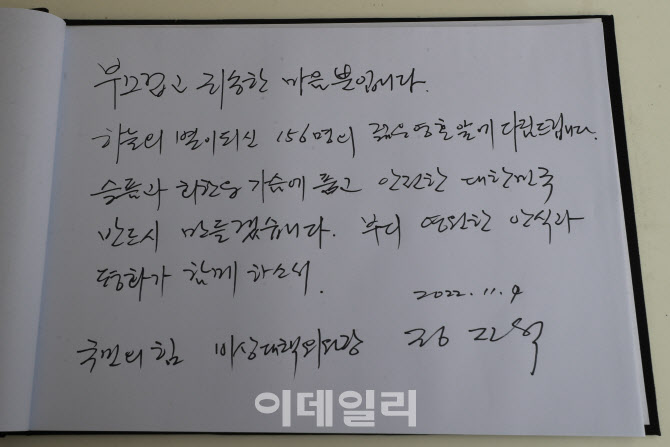 부끄럽고 죄송한 마음뿐입니다.
하늘의 별이되신 156명의 젊은영혼앞에 다짐드립니다.
슬픔과 회한을 가슴에 품고 안전한 대한민국
반드시 만들겠습니다. 부디 영원한 안식과
평화가 함께 하소서.
2022. 11. 4
국민의힘 비상대책위원장 정진석
이데일리